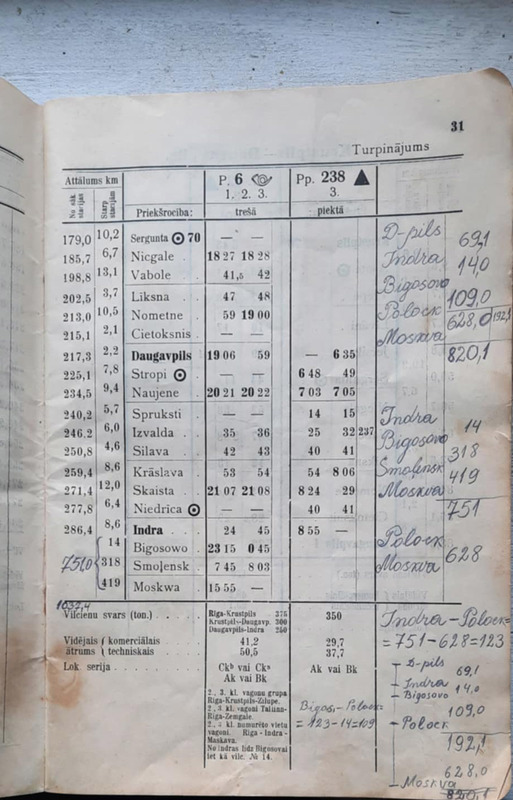 31
Turpinājums
Attālums km
No sāk. stacijas
Starp stacijām
P. 6
Pp. 238 ▲
1. 2. 3.
3.
Priekšrocība:
trešā
piektā
179,0 10,2 Sergunta ⊙ 70 — —
185,7 6,7 Nicgale 18 27 18 28
198,8 13,1 Vabole 41,5 42
202,5 3,7 Līksna 47 48
213,0 10,5 Nometne 59 19 00
215,1 2,1 Cietoksnis — —
217,3 2,2 Daugavpils 19 06 59 — 6 35
225,1 7,8 Stropi ⊙ — — 6 48 49
234,5 9,4 Naujene 20 21 20 22 7 03 7 05
240,2 5,7 Spruksti — — 14 15
246,2 6,0 Izvalda 35 36 25 32 237
250,8 4,6 Silava 42 43 40 41
259,4 8,6 Krāslava 53 54 54 8 06
271,4 12,0 Skaista 21 07 21 08 8 24 29
277,8 6,4 Niedrīca ⊙ — — 40 41
286,4 8,6 Indra 24 45 8 55 —
14 Bigosowo 23 15 0 45
751,0 318 Smoļensk 7 45 8 03
419 Moskwa 15 55 —
1037,4
Vilcienu svars (ton.)
Rīga-Krustpils 375
Krustpils-Daugavp. 300
Daugavpils-Indra 250
350
Vidējais ātrums { komerciālais 41,2 29,7
techniskais 50,5 37,7
Lok. serija
Ckb vai Cka
Ak vai Bk
Ak vai Bk
2., 3. kl. vagonu grupa
Rīga-Krustpils-Zilupe.
2., 3. kl. vagoni Tallinn-
Rīga-Zemgale.
2., 3. kl. numurēto vietu
vagoni. Rīga - Indra -
Maskava.
No Indras līdz Bigosovai
iet kā vilc. № 14.
Bigos.-Polock=
= 123-14=109
D-pils 69,1
Indra 14,0
Bigosovo 109,0
Polock 628,0 192,1
Moskva
820,1
Indra 14
Bigosovo 318
Smoļensk 419
Moskva
751
Polock 628
Moskva
Indra – Polock=
=751-628=123
D-pils
69,1
Indra
14,0
Bigosovo
109,0
Polock
192,1
628,0
Moskva
820,1